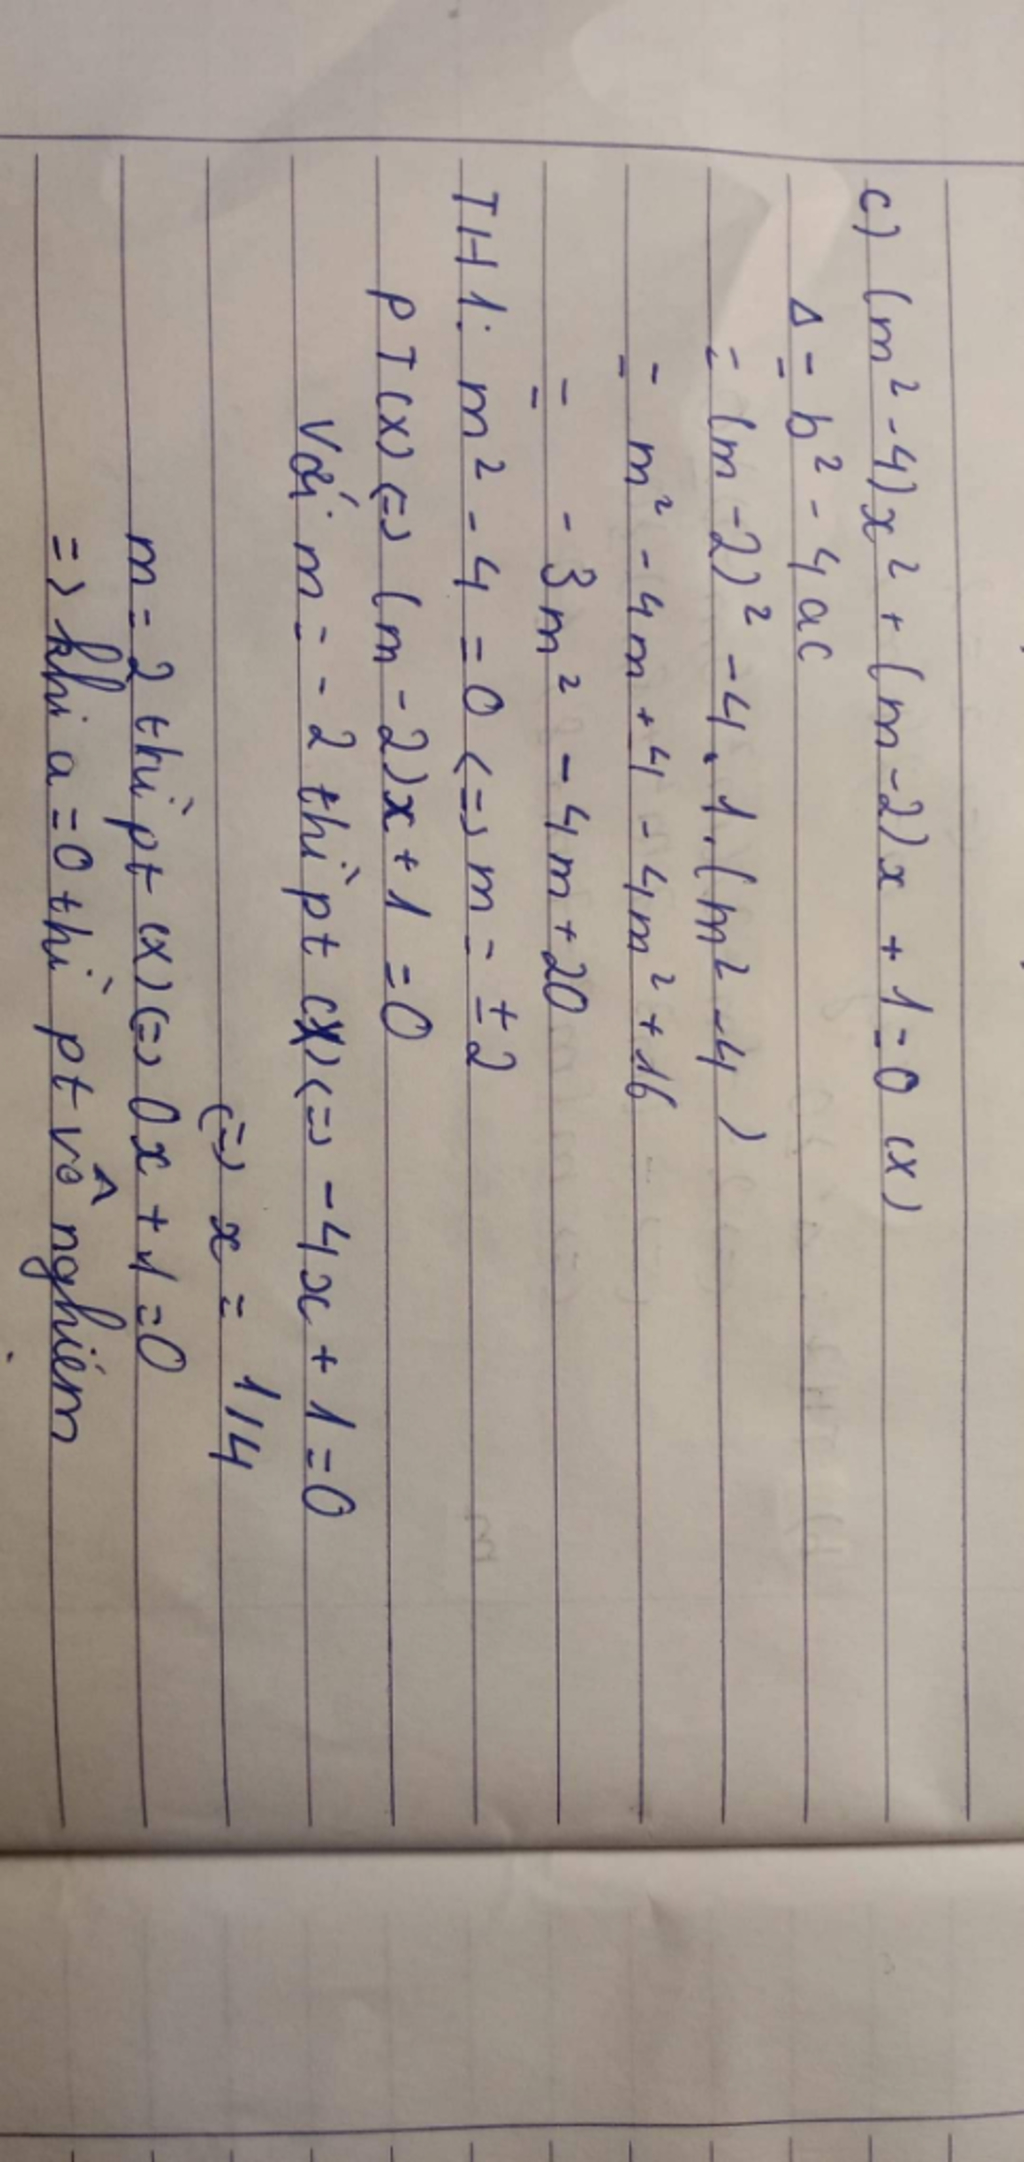 c) (m² - 4)x² + (m - 2)x + 1 = 0 (x)
Δ = b² - 4ac
= (m - 2)² - 4.1.(m² - 4)
= m² - 4m + 4 - 4m² + 16
= - 3m² - 4m + 20
TH1: m² - 4 = 0 <=> m = ± 2
PT (x) <=> (m - 2)x + 1 = 0
Với m = - 2 thì pt (x) <=> - 4x + 1 = 0
<=> x = 1/4
m = 2 thì pt (x) <=> 0x + 1 = 0
=> khi a = 0 thì pt vô nghiêm